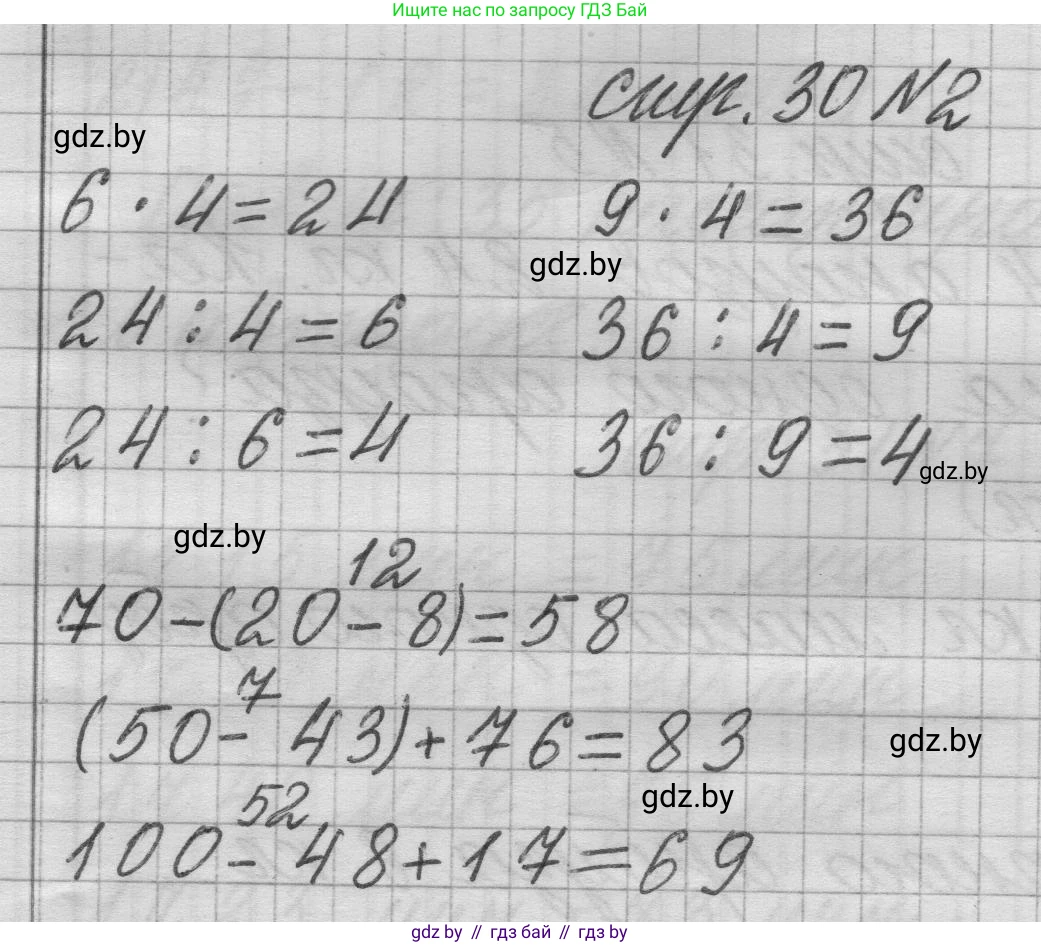 Ищите нас по запросу ГДЗ Бай
стр. 30 №2
gdz.by
6 · 4 = 24 9 · 4 = 36
gdz.by
24 : 4 = 6 36 : 4 = 9
24 : 6 = 4 36 : 9 = 4
gdz.by
gdz.by
12
70 - (20 - 8) = 58
7
(50 - 43) + 76 = 83
gdz.by
gdz.by
52
100 - 48 + 17 = 69
gdz.by // гдз бай // gdz.by